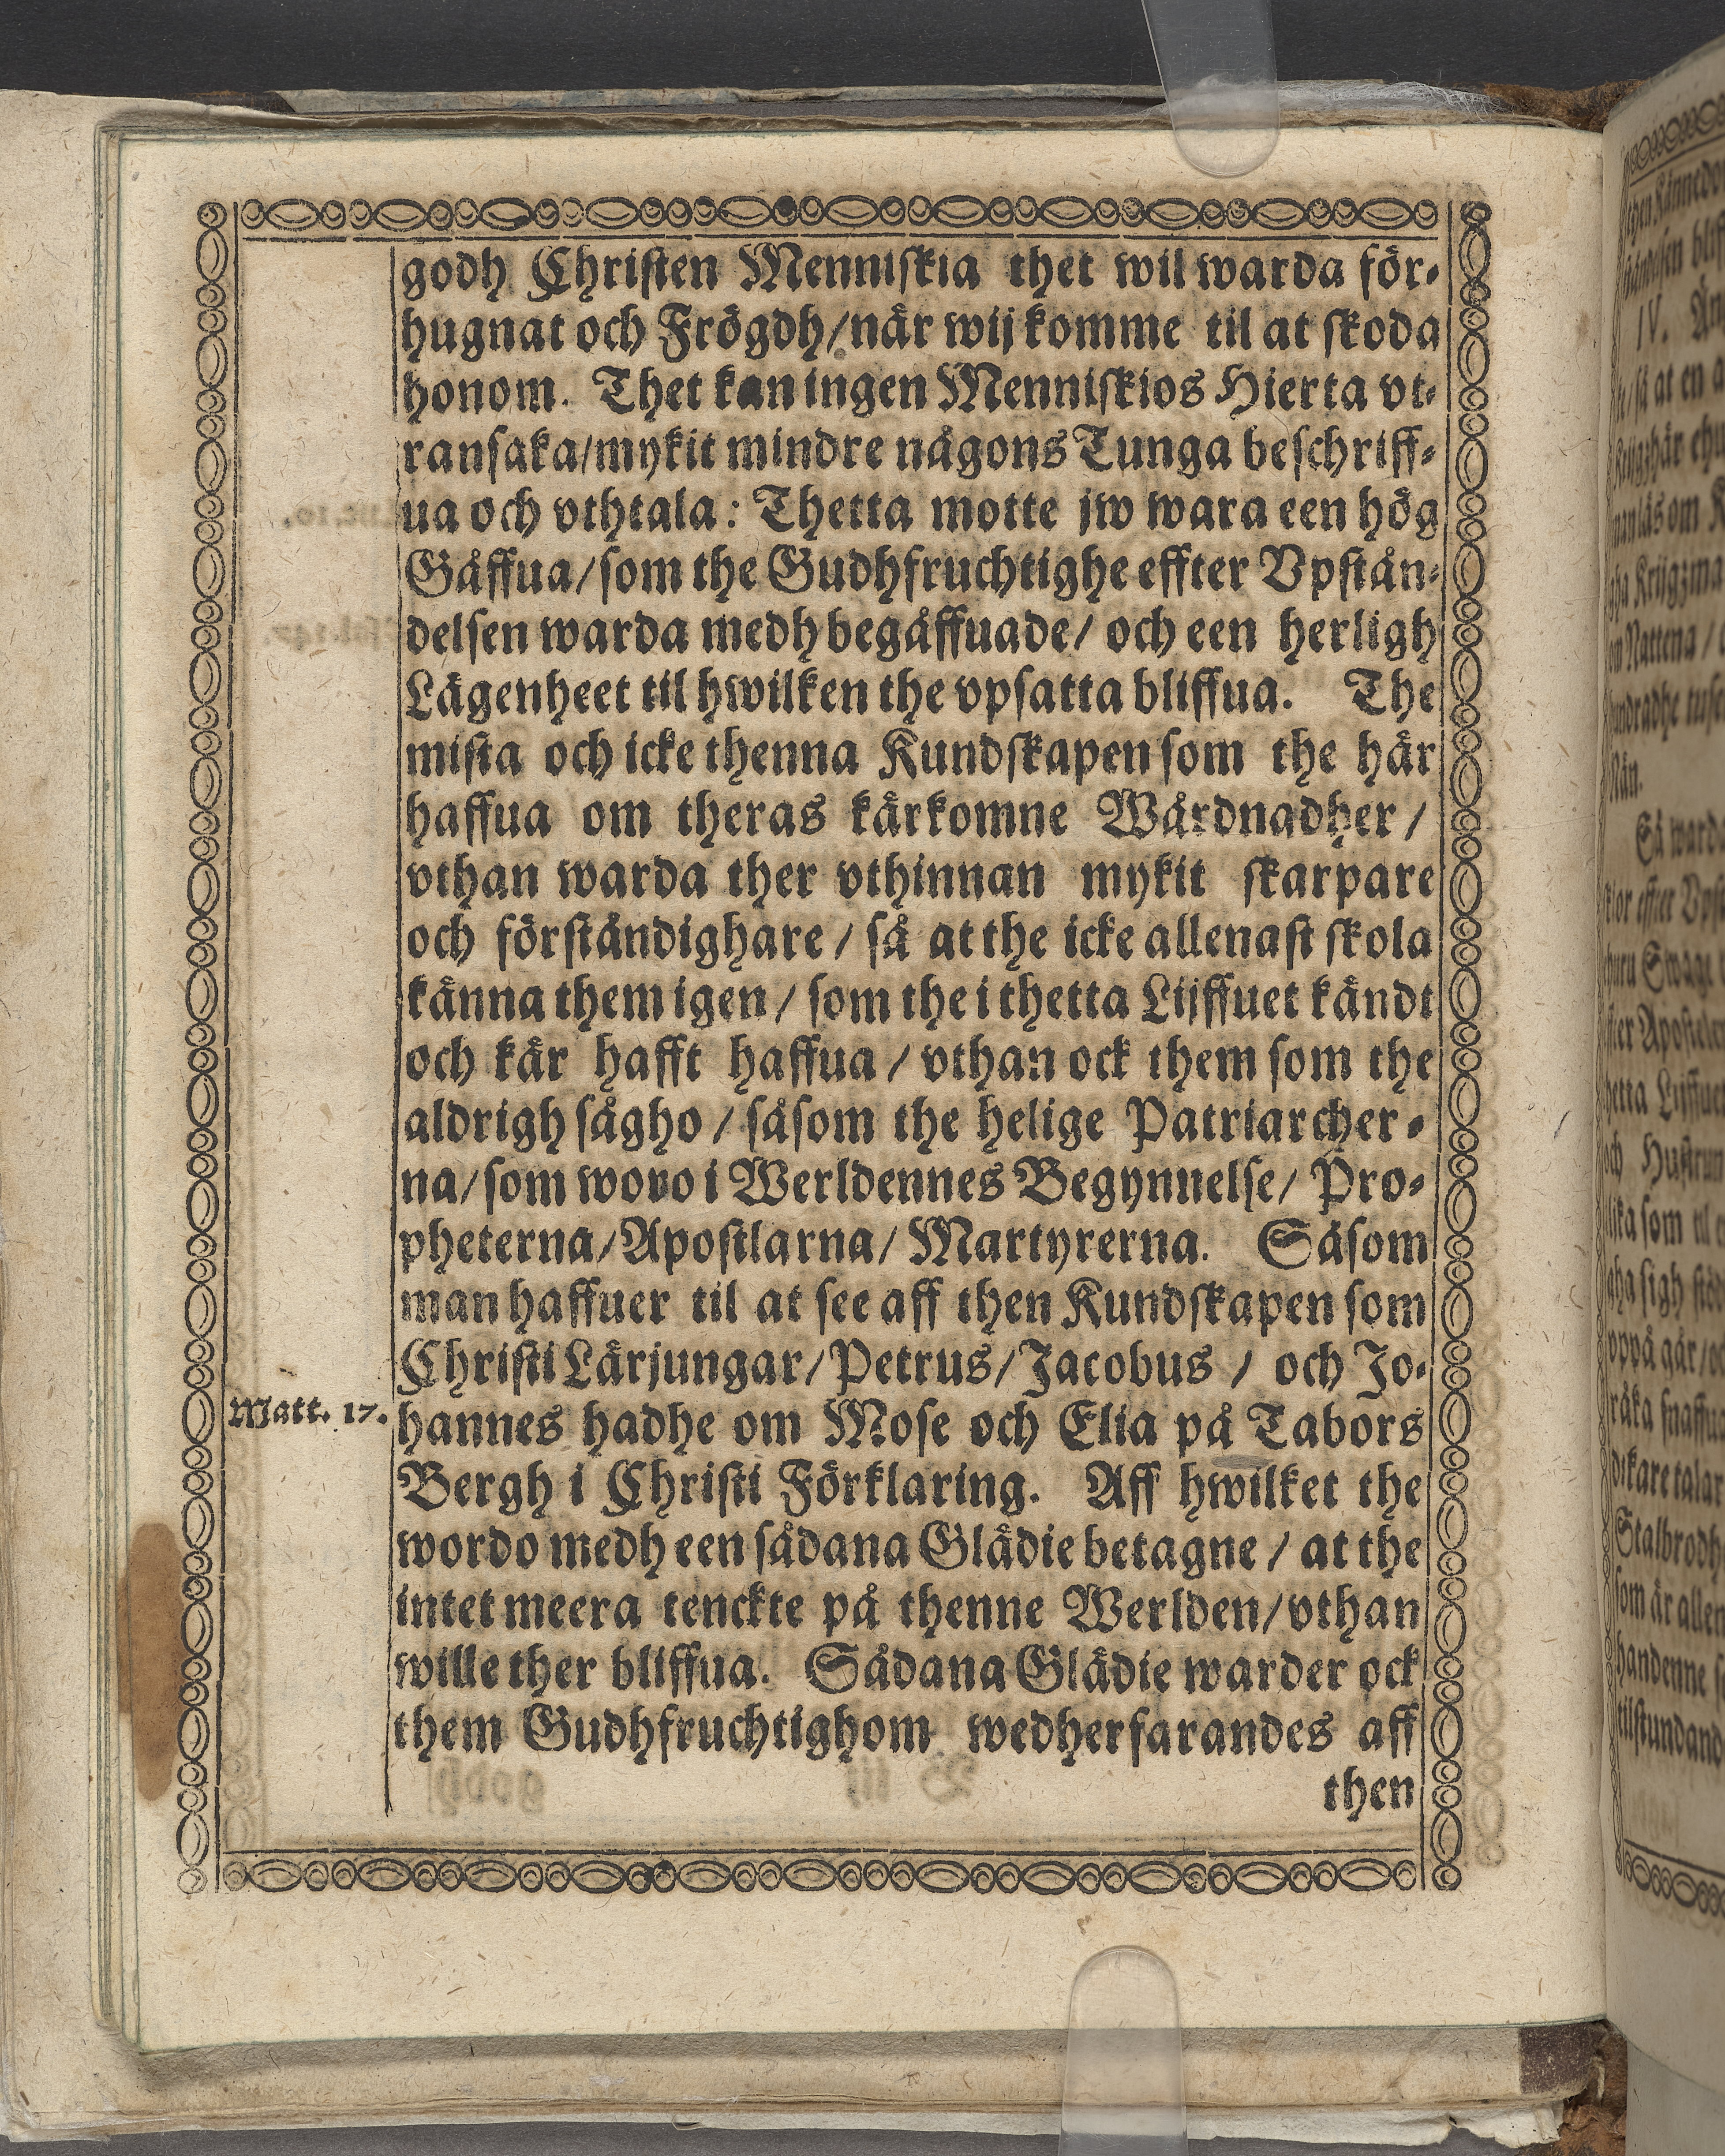 godh Christen Menniskia thet wil warda för-
hugnat och Frögdh/när wij komme til at skoda
honom. Thet kan ingen Menniskios Hierta vt-
ransaka/mykit mindre någons Tunga beschriff-
ua och vthtala: Thetta motte jw wara een hög
Gåffua/som the Gudhfruchtighe effter Vpstån-
delsen warda medh begåffuade/ och een herligh
Lägenheet til hwilken the vpsatta bliffua. The
mista och icke thenna Kundskapen som the här
haffua om theras kärkomne Wårdnadher/
vthan warda ther vthinnan mykit skarpare
och förståndighare/ så at the icke allenast skola
känna them igen/ som the i thetta Lijffuet kändt
och kär hafft haffua/ vthan ock them som the
aldrigh sågho/ såsom the helige Patriarcher-
na/som wovo i Werldennes Begynnelse/ Pro-
pheterna/Apostlarna/ Martyrerna. Såsom
man haffuer til at see aff then Kundskapen som
Christi Lärjungar/Petrus/Jacobus/ och Jo-
Matt. 17.
hannes hadhe om Mose och Elia på Tabors
Bergh i Christi Förklaring. Aff hwilket the
wordo medh een sådana Glädie betagne/ at the
intet meera tenckte på thenne Werlden/vthan
wille ther bliffua. Sådana Glädie warder ock
them Gudhfruchtighom wedherfarandes aff
then